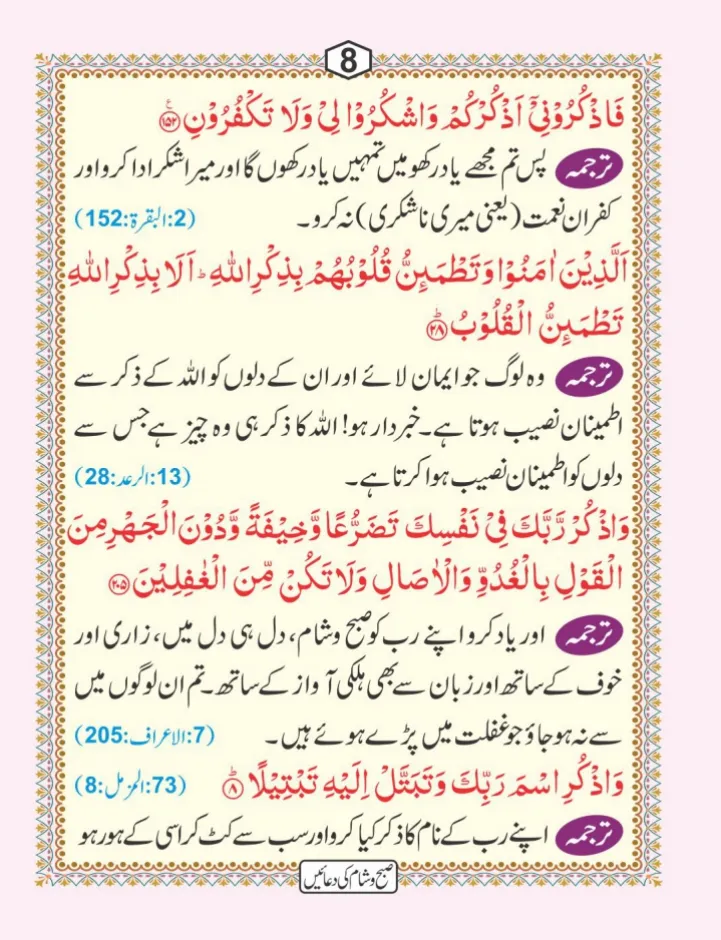 8
فَاذْكُرُوْنِيْۤ اَذْكُرْكُمْ وَاشْكُرُوْا لِيْ وَلَا تَكْفُرُوْنِ ﴿١٥٢﴾ ع
ترجمہ پس تم مجھے یاد رکھو میں تمہیں یاد رکھوں گا اور میرا شکر ادا کرو اور
کفران نعمت (یعنی میری ناشکری) نہ کرو۔ (2:البقرۃ:152)
اَلَّذِيْنَ اٰمَنُوْا وَتَطْمَئِنُّ قُلُوْبُهُمْ بِذِكْرِ اللهِ ؕ اَلَا بِذِكْرِ اللهِ
تَطْمَئِنُّ الْقُلُوْبُ ﴿٢٨﴾ؕ
ترجمہ وہ لوگ جو ایمان لائے اور ان کے دلوں کو اللہ کے ذکر سے
اطمینان نصیب ہوتا ہے۔ خبردار ہو! اللہ کا ذکر ہی وہ چیز ہے جس سے
دلوں کو اطمینان نصیب ہوا کرتا ہے۔ (13:الرعد:28)
وَاذْكُرْ رَّبَّكَ فِيْ نَفْسِكَ تَضَرُّعًا وَّخِيْفَةً وَّدُوْنَ الْجَهْرِ مِنَ
الْقَوْلِ بِالْغُدُوِّ وَالْاٰصَالِ وَلَا تَكُنْ مِّنَ الْغٰفِلِيْنَ ﴿٢٠٥﴾
ترجمہ اور یاد کرو اپنے رب کو صبح وشام، دل ہی دل میں، زاری اور
خوف کے ساتھ اور زبان سے بھی ہلکی آواز کے ساتھ۔ تم ان لوگوں میں
سے نہ ہو جاؤ جو غفلت میں پڑے ہوئے ہیں۔ (7:الاعراف:205)
وَاذْكُرِ اسْمَ رَبِّكَ وَتَبَتَّلْ اِلَيْهِ تَبْتِيْلًا ﴿٨﴾ؕ (73:المزمل:8)
ترجمہ اپنے رب کے نام کا ذکر کیا کرو اور سب سے کٹ کر اسی کے ہو رہو
صبح وشام کی دعائیں